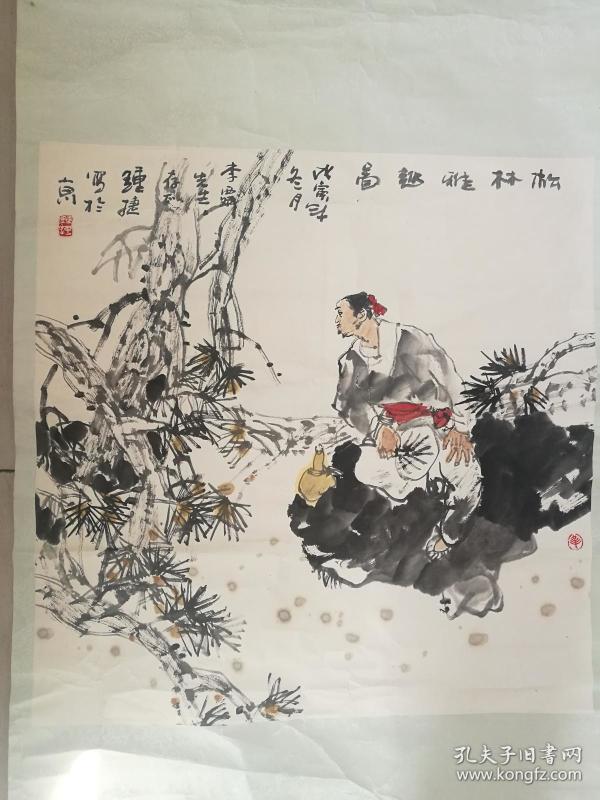 松林雅趣圖
戊寅年
冬月
李
先生
存
鍾
寫於
孔夫子旧书网
www.kongfz.com